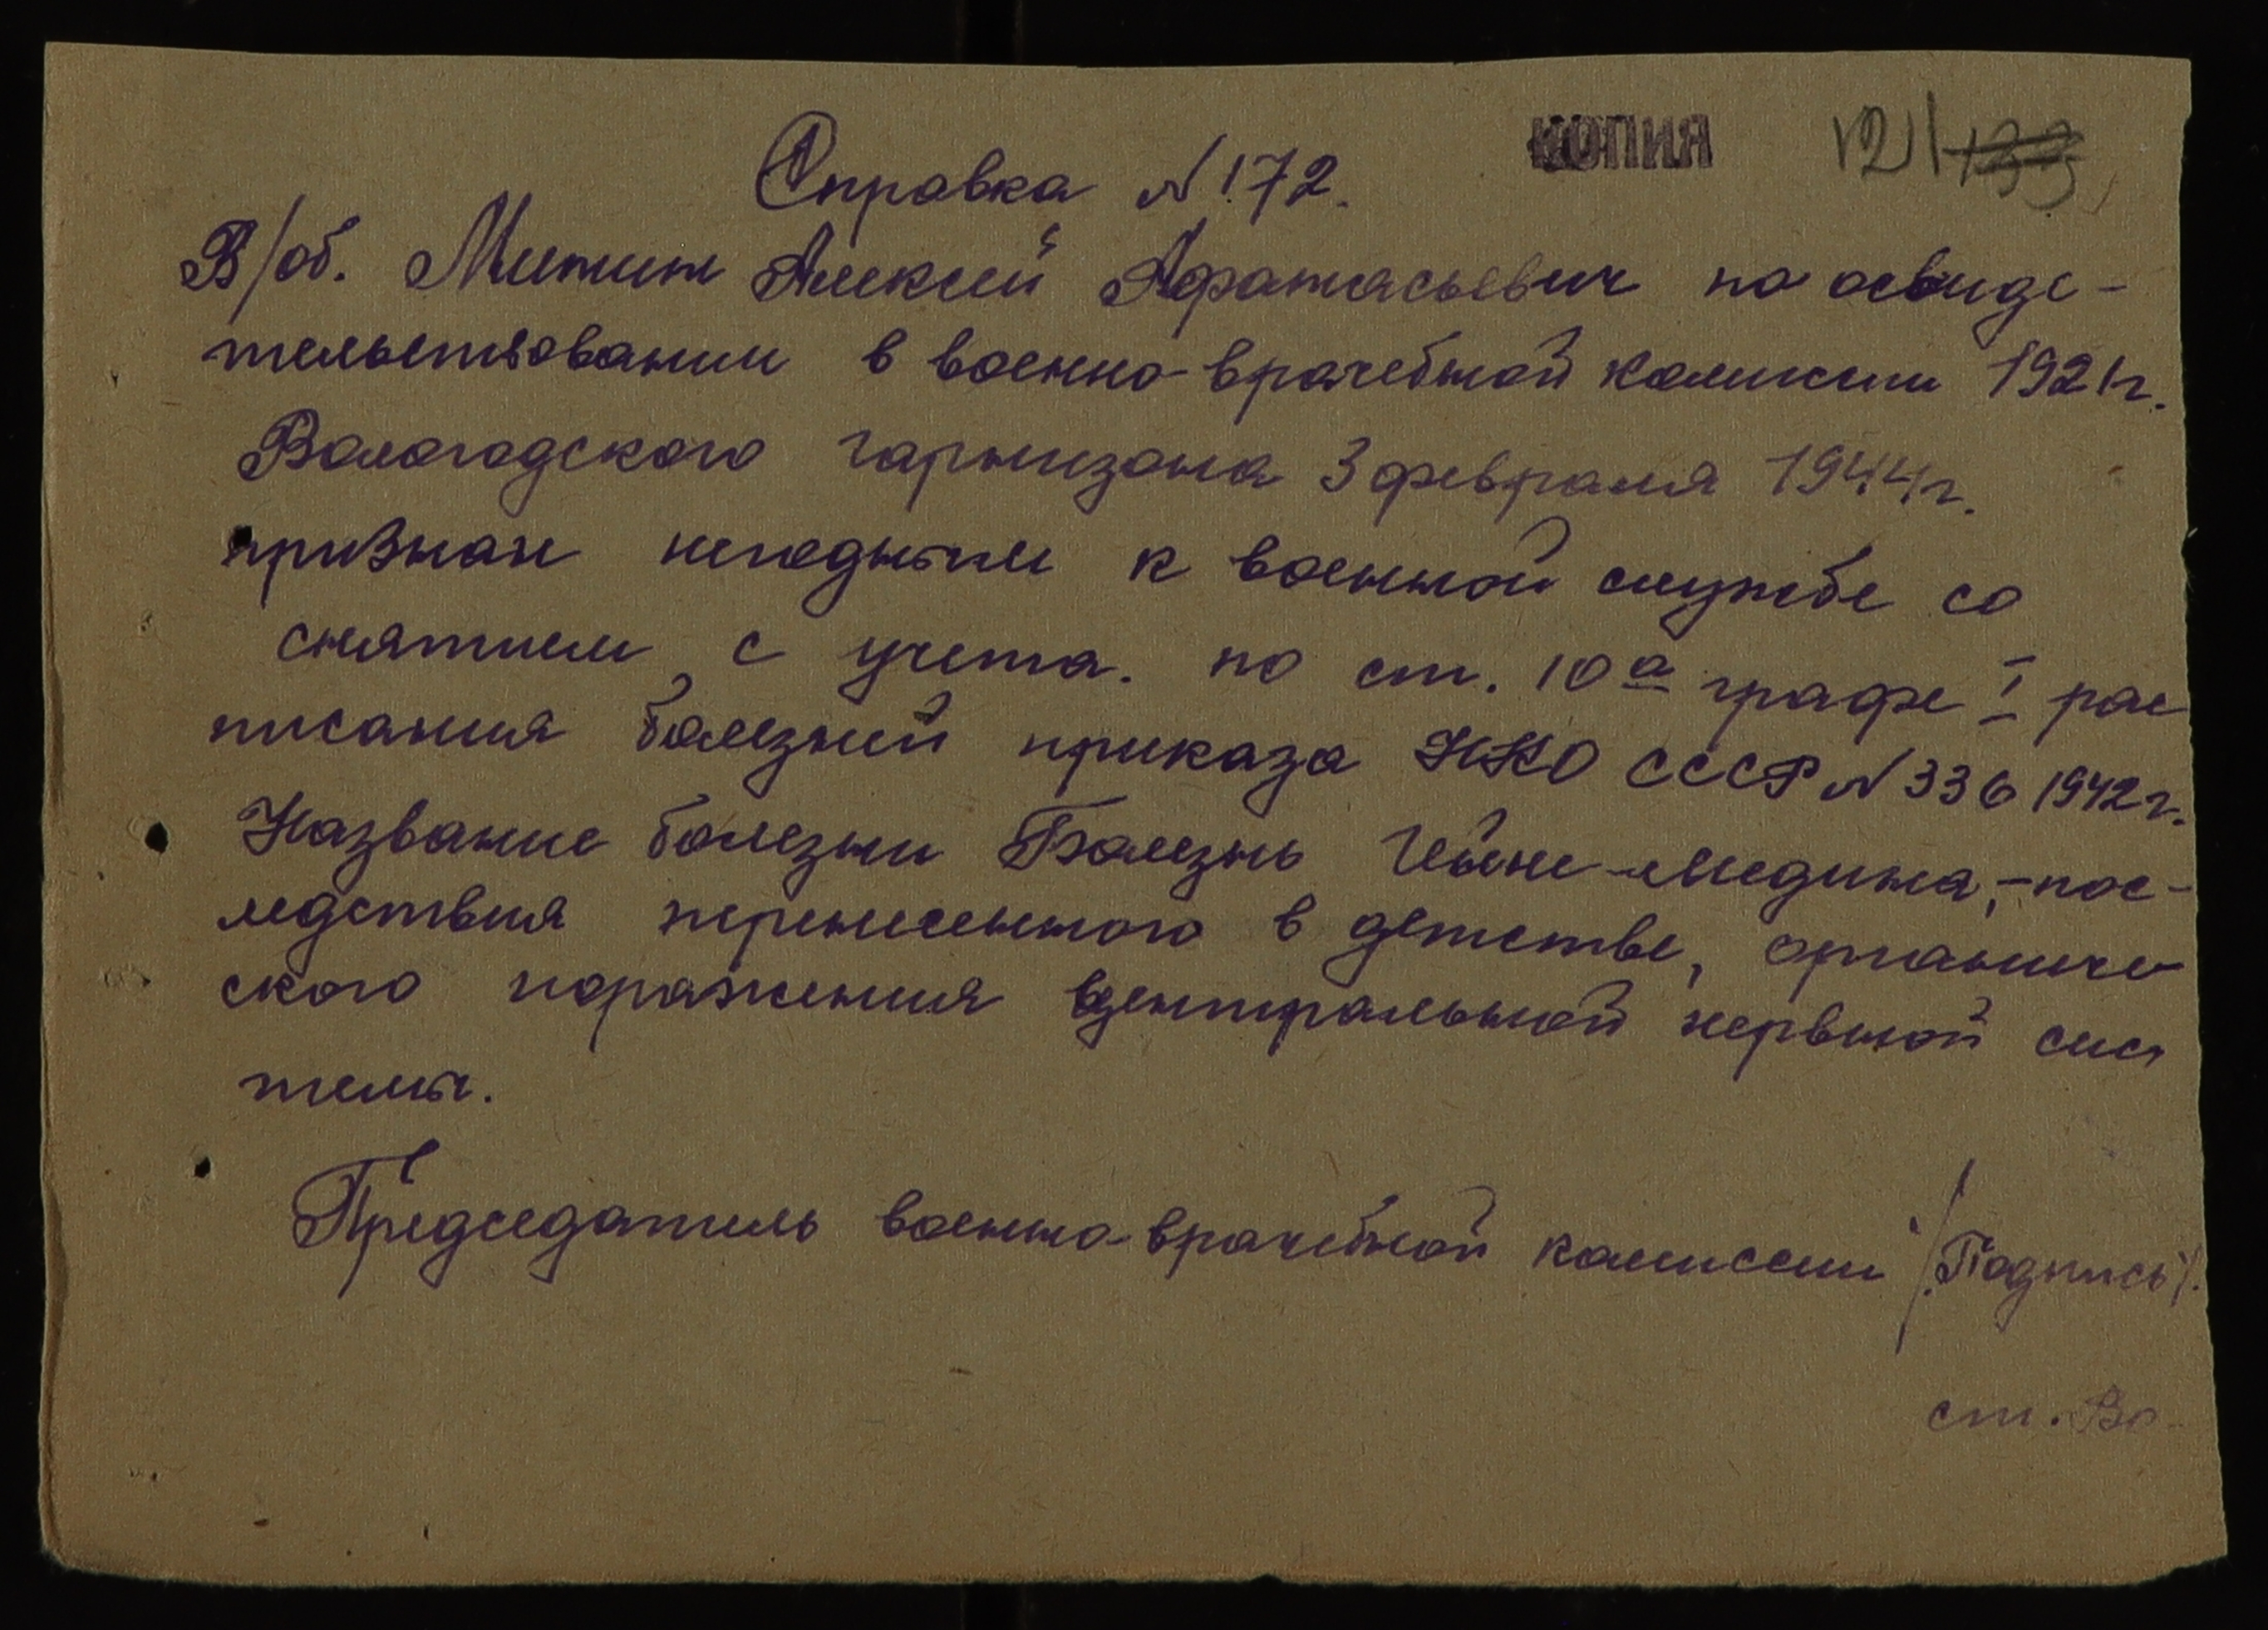 КОПИЯ 121 133
Справка N 172.
В/об. Митин Алексей Афанасьевич по освиде-
тельствовании в военно-врачебной комиссии 1921г.
Вологодского гарнизона 3 февраля 1944г.
признан негодным к военной службе со
снятием с учета. по ст. 10а графе I рас
писания болезней приказа НКО СССР N 336 1942г.
Название болезни Болезнь Гейне-Медина,-пос-
ледствия перенесенного в детстве, органиче-
ского поражения центральной нервной сис
темы.
Председатель военно-врачебной комиссии /Подпись/.
ст. Во